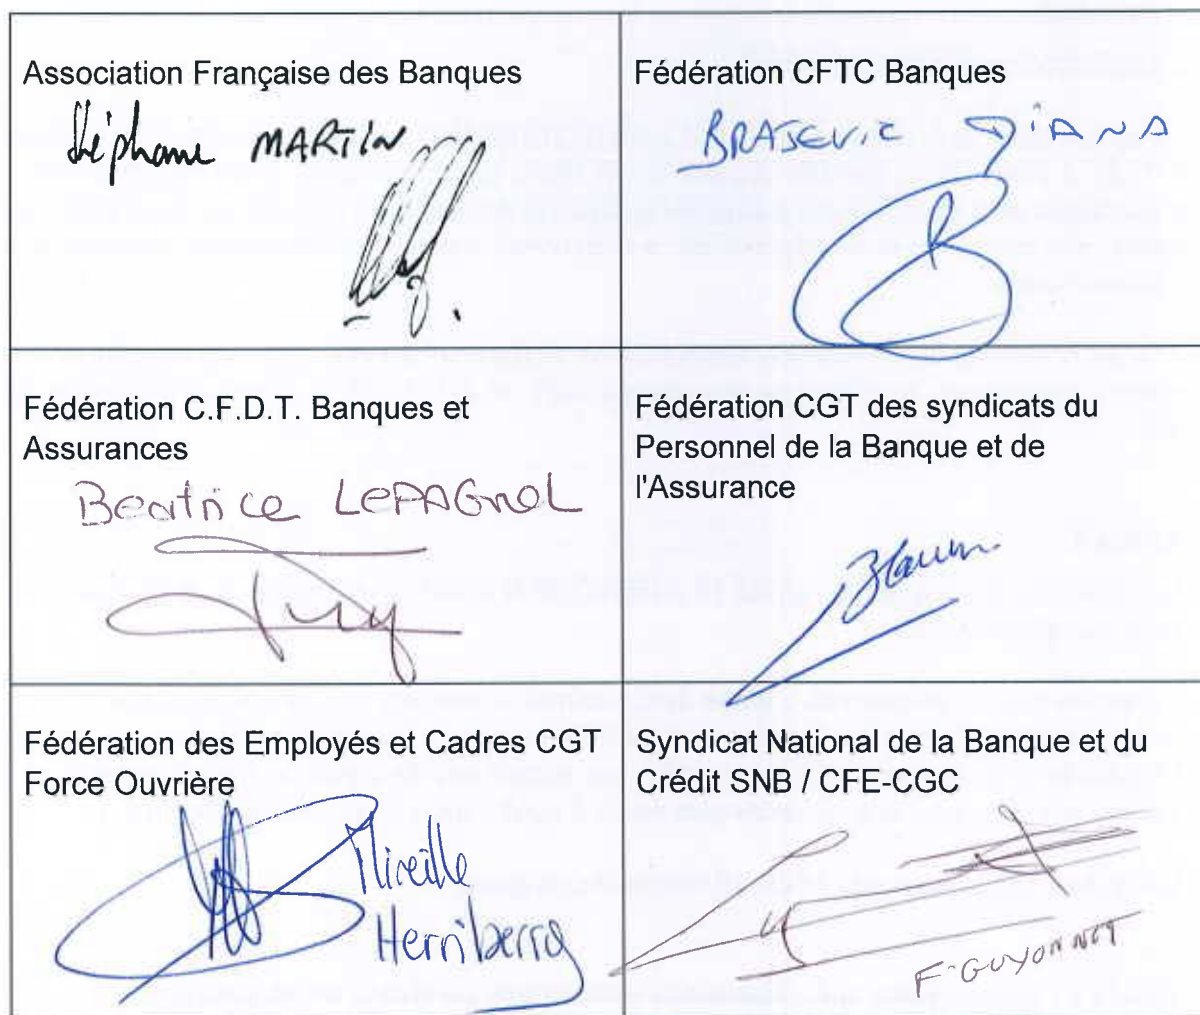 Association Française des Banques
Stéphane MARTIN
Fédération CFTC Banques
BRASEVIC DIANA
Fédération C.F.D.T. Banques et
Assurances
Beatrice LEPAGNOL
Fédération CGT des syndicats du
Personnel de la Banque et de
l'Assurance
Fédération des Employés et Cadres CGT
Force Ouvrière
Mireille
Herriberry
Syndicat National de la Banque et du
Crédit SNB / CFE-CGC
F. GUYONNET